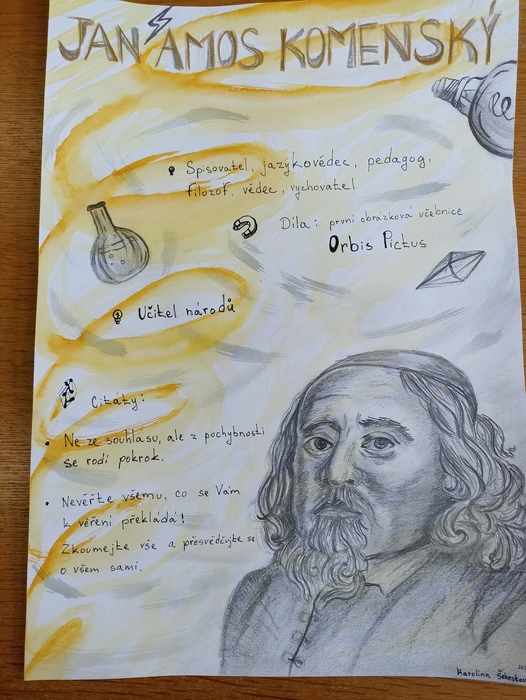 JAN AMOS KOMENSKÝ
Spisovatel, jazykovědec, pedagog,
filozof, vědec, vychovatel
Díla: první obrázková učebnice
Orbis Pictus
Učitel národů
Citáty:
Ne ze souhlasu, ale z pochybnosti
se rodí pokrok.
Nevěřte všemu, co se Vám
k věření překládá!
Zkoumejte vše a přesvědčujte se
o všem sami.
Karolína